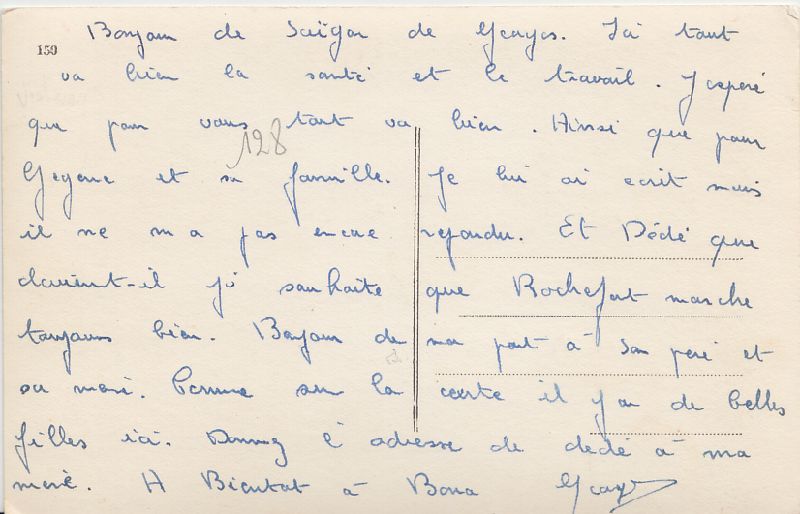 159
Bonjour de Saïgon de Gcayes. Ici tout
va bien la santé et le travail. J'esperé
que pour vous tout va bien. Ainsi que pour
128
Gegene et sa famille. Je lui ai ecrit mais
il ne m a pas encore repondu. Et Dédé que
devient-il j' souhaite que Rochefort marche
toujours bien. Bonjour de ma part à son peré et
sa meré. Comme sur la carte il y a de belles
filles ici. Donnez l' adresse de dedé à ma
meré. A Bientot à Bona